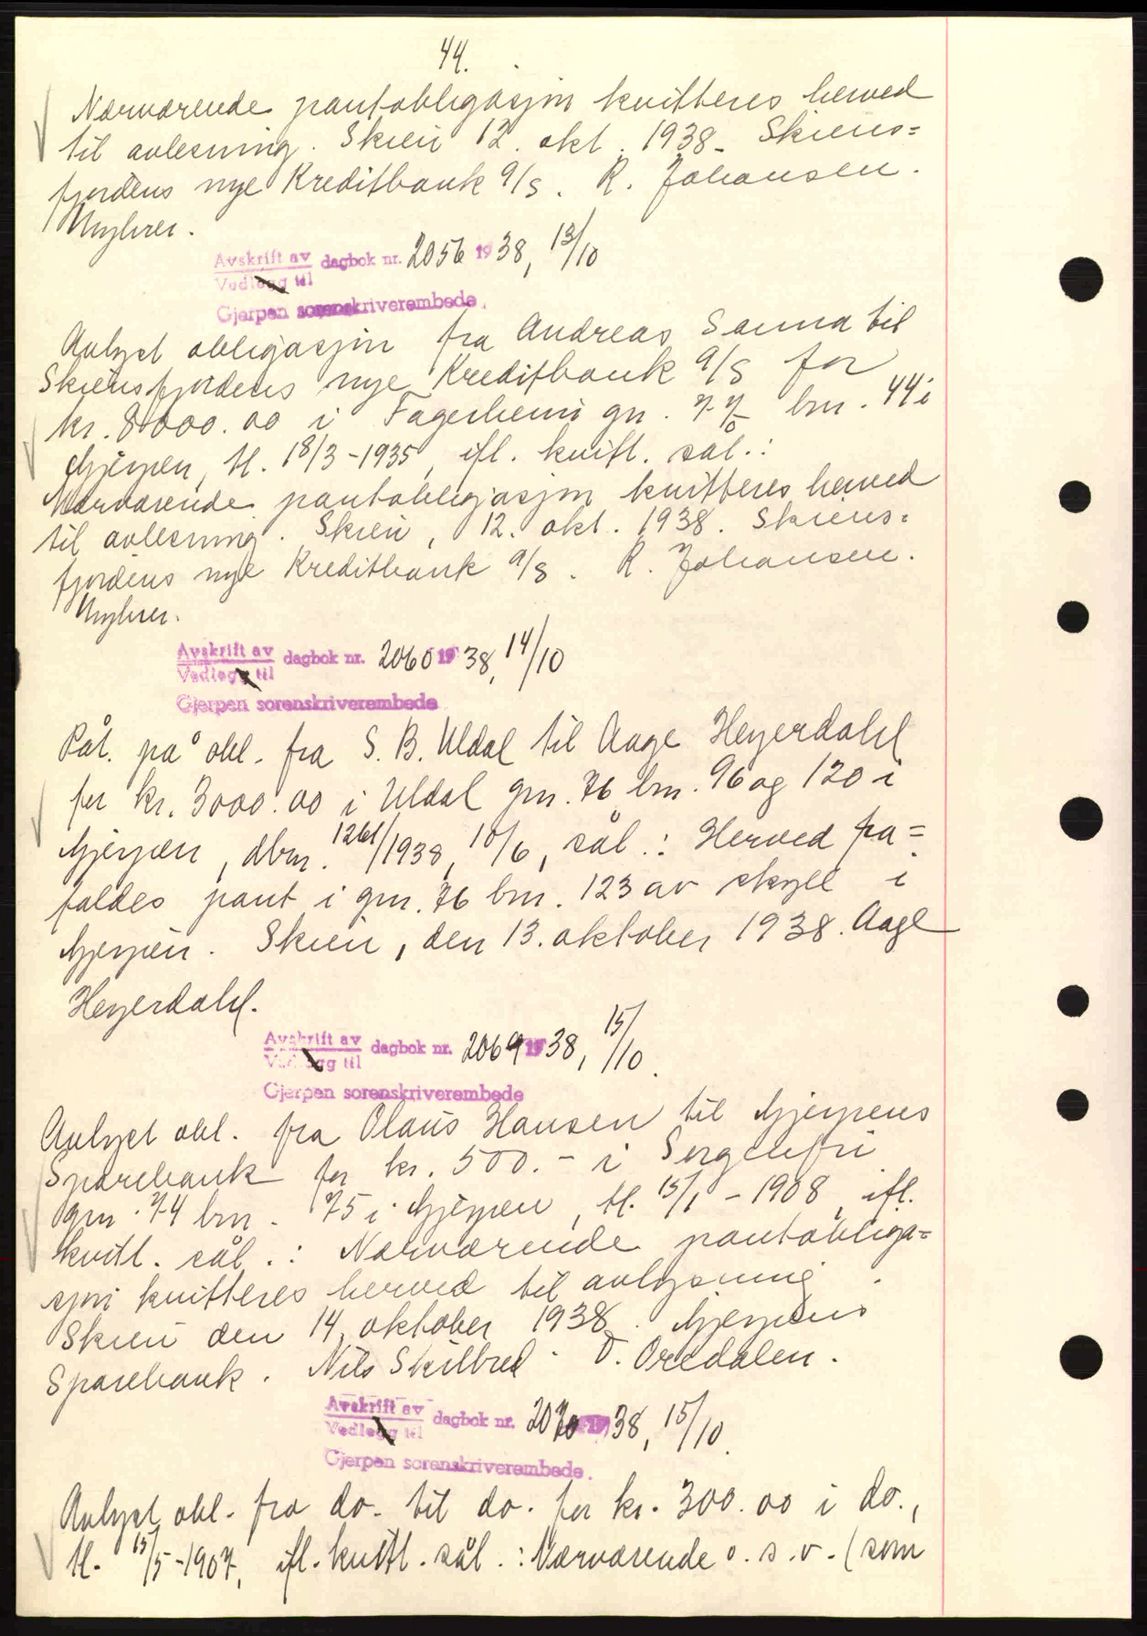 44.
Nærværende pantobligasjon kvitteres herved
til avlesning. Skien 12. okt. 1938. Skiens=
fjordens nye Kreditbank A/S. R. Johansen.
Myhrer.
Avskrift av dagbok nr. 2056 1938, 13/10
Vedlegg til
Gjerpen sorenskriverembede.
Avlyst obligasjon fra Andreas Sanna til
Skiensfjordens nye Kreditbank A/S for
kr. 8000.00 i Fagerheim gn. bnr. 44 i
Gjerpen, tl. 18/3-1935, ifl. kvitt. sål.:
Nærværende pantobligasjon kvitteres herved
til avlesning. Skien, 12. okt. 1938. Skiens=
fjordens nye Kreditbank A/S. R. Johansen.
Myhrer.
Avskrift av dagbok nr. 2060 1938, 14/10
Vedlegg til
Gjerpen sorenskriverembede
Påt. på obl. fra S. B. Uldal til Aage Heyerdahl
for kr. 3000.00 i Uldal gnr. 76 bnr. 96 og 120 i
Gjerpen, dbnr. 1261/1938, 10/6, sål.: Herved fra=
faldes pant i gnr. 76 bnr. 123 av skyll i
Gjerpen. Skien, den 13. oktober 1938. Aage
Heyerdahl.
Avskrift av dagbok nr. 2069 1938, 15/10.
Vedlegg til
Gjerpen sorenskriverembede
Avlyst obl. fra Olaus Hansen til Gjerpens
Sparebank for kr. 500.- i Sorgenfri
gnr. 74 bnr. 75 i Gjerpen, tl. 15/1-1908, ifl.
kvitt. sål.: Nærværende pantobliga=
sjon kvitteres herved til avlysning.
Skien den 14. oktober 1938. Gjerpens
Sparebank. Nils Skilbred. O. Oredalen.
Avskrift av dagbok nr. 2070 1938, 15/10.
Vedlegg til
Gjerpen sorenskriverembede.
Avlyst obl. fra do. til do. for kr. 300.00 i do.,
tl. 15/5-1907, ifl. kvitt. sål.: Nærværende o.s.v. (som